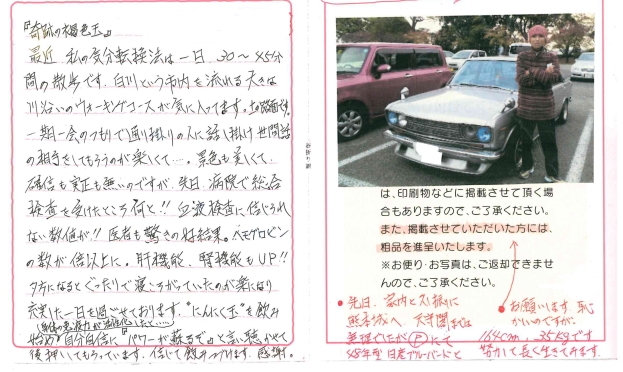 『奇跡の褐色玉』
最近 私の気分転換法は一日 30〜45分
間の散歩です。白川という市内を流れる大きな
川沿いのウォーキングコースが気に入ってます。
一期一会のつもりで通り掛りの人に話し掛け 世間話
の相手をしてもらうのが楽しくて…。景色も美しくて、
確信も実証も無いのですが、先日、病院で総合
検査を受けたところ何と!! 血液検査に信じられ
ない数値が!! 医者も驚きの好結果。ヘモグロビン
の数が倍以上に。肝機能、腎機能もUP!!
夕方になるとぐったりで寝ころがっていたのが楽になり
充実した一日を過ごせております。"にんにく玉"を飲み
始め 自分自信に「パワーが蘇るで」と言い聴かせて
後押ししてもらっています。信じて飲みつづけます。感謝。
は、印刷物などに掲載させて頂く場
合もありますので、ご了承ください。
また、掲載させていただいた方には、
粗品を進呈いたします。
※お便り・お写真は、ご返却できませ
んので、ご了承ください。
●お願いします 恥
かいのですが。
●先日、家内と久し振に
熊本城へ 天守閣までは
無理でしたが Ⓟにて
48年型 日産ブルーバードと
164cm、35kgです
努力して長く生きてみます。